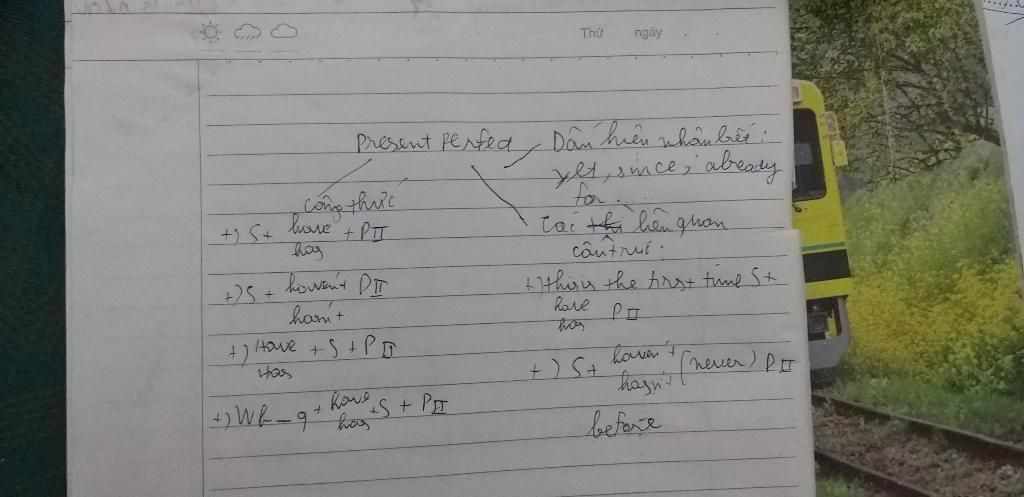 Thứ ngày
Present Perfect
Dấu hiệu nhận biết:
yet, since, already
for ...
Công thức
+) S + have + PII
has
+) S + haven't PII
hasn't
+) Have + S + PII
Has
+) Wh - q + have + S + PII
has
Các liên quan
cấu trúc:
+) this is the first time S +
have PII
has
+) S + haven't (never) PII
hasn't
before